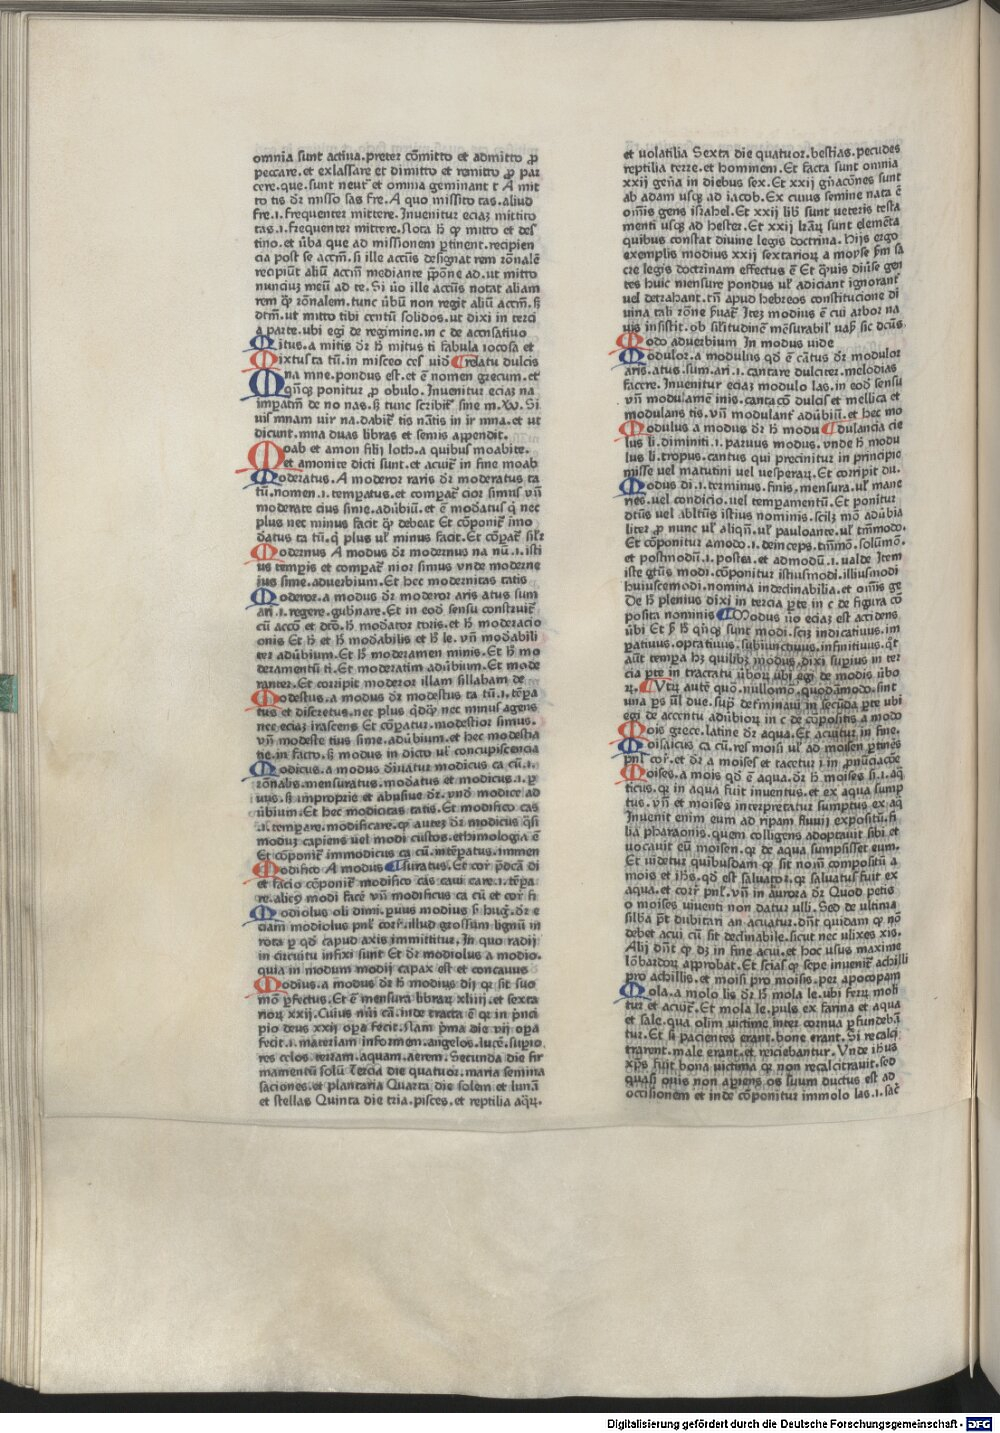 omnia sunt actiua.preter cōmitto et admitto ꝓ
peccare.et exlassare et dimitto et remitto ꝓ par
cere.que.sunt neutͬ et omnia geminant t A mit
to tis dr̄ misso sas fre.A quo missito tas.aliud
fre.i.frequenter mittere.Inuenitur eciaꝫ mittito
tas.i.frequenter mittere.Nota ꝙ mitto et des
tino.et úba que ad missionem ꝑtinent.recipien
cia post se accm̄.si ille accūs designat rem rōnalē
recipiūt aliū accm̄ mediante p̄pōne ad.ut mitto
nunciuꝫ meū ad te.Si úo ille accūs notat aliam
rem ꝙ̄ rōnalem.tunc úbū non regit aliū accm̄.sꝫ
dtm̄.ut mitto tibi centū solidos.ut dixi in terci
a parte.ubi egi de regimine.in c de accusatiuo
Mitus.a mitis dr̄ hͦ mitus ti fabula iocosa et
Mixtus ta tū.in misceo ces uid̄ relatu dulcis
Mna mne.pondus est.et ē nomen grecum.et
qn̄qꝫ ponitur ꝓ obulo.Inuenitur eciaꝫ na
impatm̄ de no nas.sꝫ tunc scribitͬ sine m.Xv.Si
uis mnam uir na.dabitͬ tis nātis in ir mna.et ut
dicunt.mna duas libras et semis appendit.
Moab et amon filij loth.a quibus moabite.
et amonite dicti sunt.et acuitͬ in fine moab
Moderatus.A moderor raris dr̄ moderatus ta
tū.nomen.i.tempatus.et compatͬ cior simus vn̄
moderate cius sime.adúbiū.et ē mod̄atus q̇ nec
plus nec minus facit ꝙ̄ debeat Et cōponitͬ īmo
d̄atus ta tū.q̇ plus ul̄ minus facit.Et cōpatͬ sil̄r
Modernus A modus dr̄ modernus na nū.i.isti
us tempis et compatͬ nior simus vnde moderne
ius sime.aduerbium.Et hec modernitas tatis
Moderor.a modus dr̄ moderor aris atus sum
ari.i.regere.gub̄nare.Et in eod̄ sensu construitͬ
cū accō et dtō.hͦ mod̄ator toris.et hͦ moderacio
onis Et hͦ et hͦ mod̄abilis et hͦ le.vn̄ mod̄abili
ter adúbium.Et hͦ moderamen minis.Et hͦ mo
deramentū ti.Et moderatim adúbium.Et mode
ranter.Et corripit moderor illam sillabam de
Modestus.a modus dr̄ modestus ta tū.i.tēpa
tus et discretus.nec plus qd̄qꝫ nec minus agens
nec eciaꝫ irascens Et cōpatur.modestior simus.
vn̄ modeste tius sime.adúbium.et hec modestia
tie.in facto.sꝫ modus in dicto ul̄ concupiscencia
Modicus.a modus diriuatur modicus ca cū.i.
rōnabis.mensuratus.mod̄atus et modicus.i.p
uus.sꝫ improprie et abusiue dr̄.vnd̄ modice ad
úbium.Et hec modicitas tatis.Et modifico cas
.i.tempare.modificare.ꝙ auteꝫ dr̄ modicus qͣsi
moduꝫ capiens uel modi custos.ethimologia ē
Et cōponitͬ immodicus ca cū.intēpatus.immen
Modifico A modus suratus.Et corͬ p̄dcā di
et facio cōponitͬ modifico cas caui care.i.tēpa
re.alicꝫ modi facē vn̄ modificus ca cū et corͬ fi
Modiolus oli dimi.puus modius sͥ hug.dr̄ e
ciam modiolus pnl̄ corͬ.illud grossum lignū in
rota p qd̄ capud axis immittitur.In quo radij
in circuitu infixi sunt Et dr̄ modiolus a modio.
quia in modum modij capax est et concauus
Modius.a modus dr̄ hͦ modius dij qꝛ sit suo
mō ꝑfectus.Et ē mensura libraꝝ xliiij.et sexta
rioꝝ xxij.Cuius nūi cā.inde tracta ē qꝛ in p̄nci
pio deus xxij op̄a fecit.Nam p̄ma die vij op̄a
fecit.i.materiam informem.angelos.lucē.supio
res celos.terram.aquam.aerem.Secunda die fir
mamentū solū Tercia die quatuor.maria semina
saciones.et plantaria Quarta die solem et lunā
et stellas Quinta die tria.pisces.et reptilia aq̄ꝝ.
et uolatilia Sexta die quatuor.bestias.pecudes
reptilia terre.et hominem.Et facta sunt omnia
xxij gen̄a in diebus sex.Et xxij gn̄acōnes sunt
ab adam usqꝫ ad iacob.Ex cuius semine nata ē
om̄is gens israhel.Et xxij lib̄ sunt ueteris testa
menti usqꝫ ad hester.Et xxij lr̄aꝝ sunt elemēta
quibus constat diuine legis doctrina.Hijs ergo
exemplis modius xxij sextarioꝝ a moyse ẜm sa
cre legis doctrinam effectus ē Et quis diūse gen
tes huic mensure pondus ul̄ adiciant ignorantͬ
uel detrahant.tn̄ apud hebreos constitucione di
uina tali rōne ẜuatͬ.Iteꝫ modius ē cui arbor na
uis insistit.ob sil̄itudinē mēsurabil̄ uasꝫ sic dcūs.
Modo aduerbium In modus uide
Modulor.a modulus qd̄ ē cātus dr̄ modulor
aris.atus.sum.ari.i.cantare dulciter.melodias
facere.Inuenitur eciaꝫ modulo las.in eod̄ sensu
vn̄ modulamē inis.cantacō dulcis et mellica et
modulans tis.vn̄ modulantͬ adúbiū.et hec mo
Modulus a modus dr̄ hͦ modu dulancia cie
lus li.diminiti.i.paruus modus.vnde hͦ modu
lus li.tropus.cantus qui precinitur in principio
misse uel matutini uel uesperaꝝ.Et corripit du.
Modus di.i.terminus.finis.mensura.ul̄ mane
ries.uel condicio.uel tempamentū.Et ponitur
dtūs uel abltūs istius nominis.scilꝫ mō adúbia
liter ꝓ nunc ul̄ aliqn̄.ul̄ pauloante.ul̄ tm̄modo.
Et cōponitur amodo.i.deinceps.tm̄mō.solūmō.
et postmodū.i.postea.et admodū.i.ualde Item
iste gtūs modi.cōponitur istiusmodi.illiusmodi
huiuscemodi.nomina indeclinabilia.et om̄is ge
De hͦ plenius dixi in tercia pte in c de figura cō
posita nominis Modus úo eciaꝫ est accidens
úbi Et sͥ hͦ qn̄qꝫ sunt modi.sciꝫ indicatiuus.im
patiuus.optatiuus.subiunctiuus.infinitiuus.qͦt
aūt tempa hꝫ quilibꝫ modus.dixi supius in ter
cia pte in tractatu úboꝝ ubi egi de modis úbo
ꝝ. Vtꝝ autē quō.nullomō.quodāmō.sint
una ps ul̄ due.sup̄ det̄minaui in secūda pte ubi
egi de accentu adúbioꝝ in c de cōpositis a modo
Mois grece.latine dr̄ aqua.Et acuitur in fine.
Moisaicus ca cū.res moisi ul̄ ad moisen ptinēs
pnl̄ corͬ.et dr̄ a moises et tacetur i in ꝓnūciacōe
Moises.a mois qd̄ ē aqua.dr̄ hͦ moises si.i.aq̄
ticus.qꝛ in aqua fuit inuentus.et ex aqua sump
tus.vn̄ et moises interpretatur sumptus ex aq̄
Inuenit enim eum ad ripam fluuij expositū.fi
lia pharaonis.quem colligens adoptauit sibi et
uocauit eū moisen.qꝛ de aqua sumpsisset eum.
Et uidetur quibusdam ꝙ sit nom̄ compositū a
mois et ihs̄.qd̄ est saluator.qꝛ saluatus fuit ex
aqua.et corrͬ pnl̄.vn̄ in aurora dr̄ Quod petis
o moises uiuenti non datur ulli.Sed de ultima
silba pt̄ dubitari an acuatur.dn̄t quidam ꝙ nō
debet acui cū sit declinabile.sicut nec ulixes xis.
Alij dn̄t ꝙ dꝫ in fine acui.et hoc usus maxime
lōbardoꝝ approbat.Et sciasͬ ꝙ sepe inuenitͬ achilli
pro achillis.et moisi pro moisis.per apocopam
Mola.a molo lis dr̄ hͦ mola le.ubi ferꝝ moli
tur et acuitͬ.Et mola le.puls ex farina et aqua
et sale.qua olim uictime inter cornua ꝑfundebā
tur.Et si pacientes erant.bone erant.Si recalci
trarent.male erant.et reiciebantur.Vnde ihūs
xp̄s fuit bona uictima qꝛ non recalcitrauit.sed
quasi ouis non apiens os suum ductus est ad
occisionem et inde cōponitur immolo las.i.sacͬ
Digitalisierung gefördert durch die Deutsche Forschungsgemeinschaft - DFG